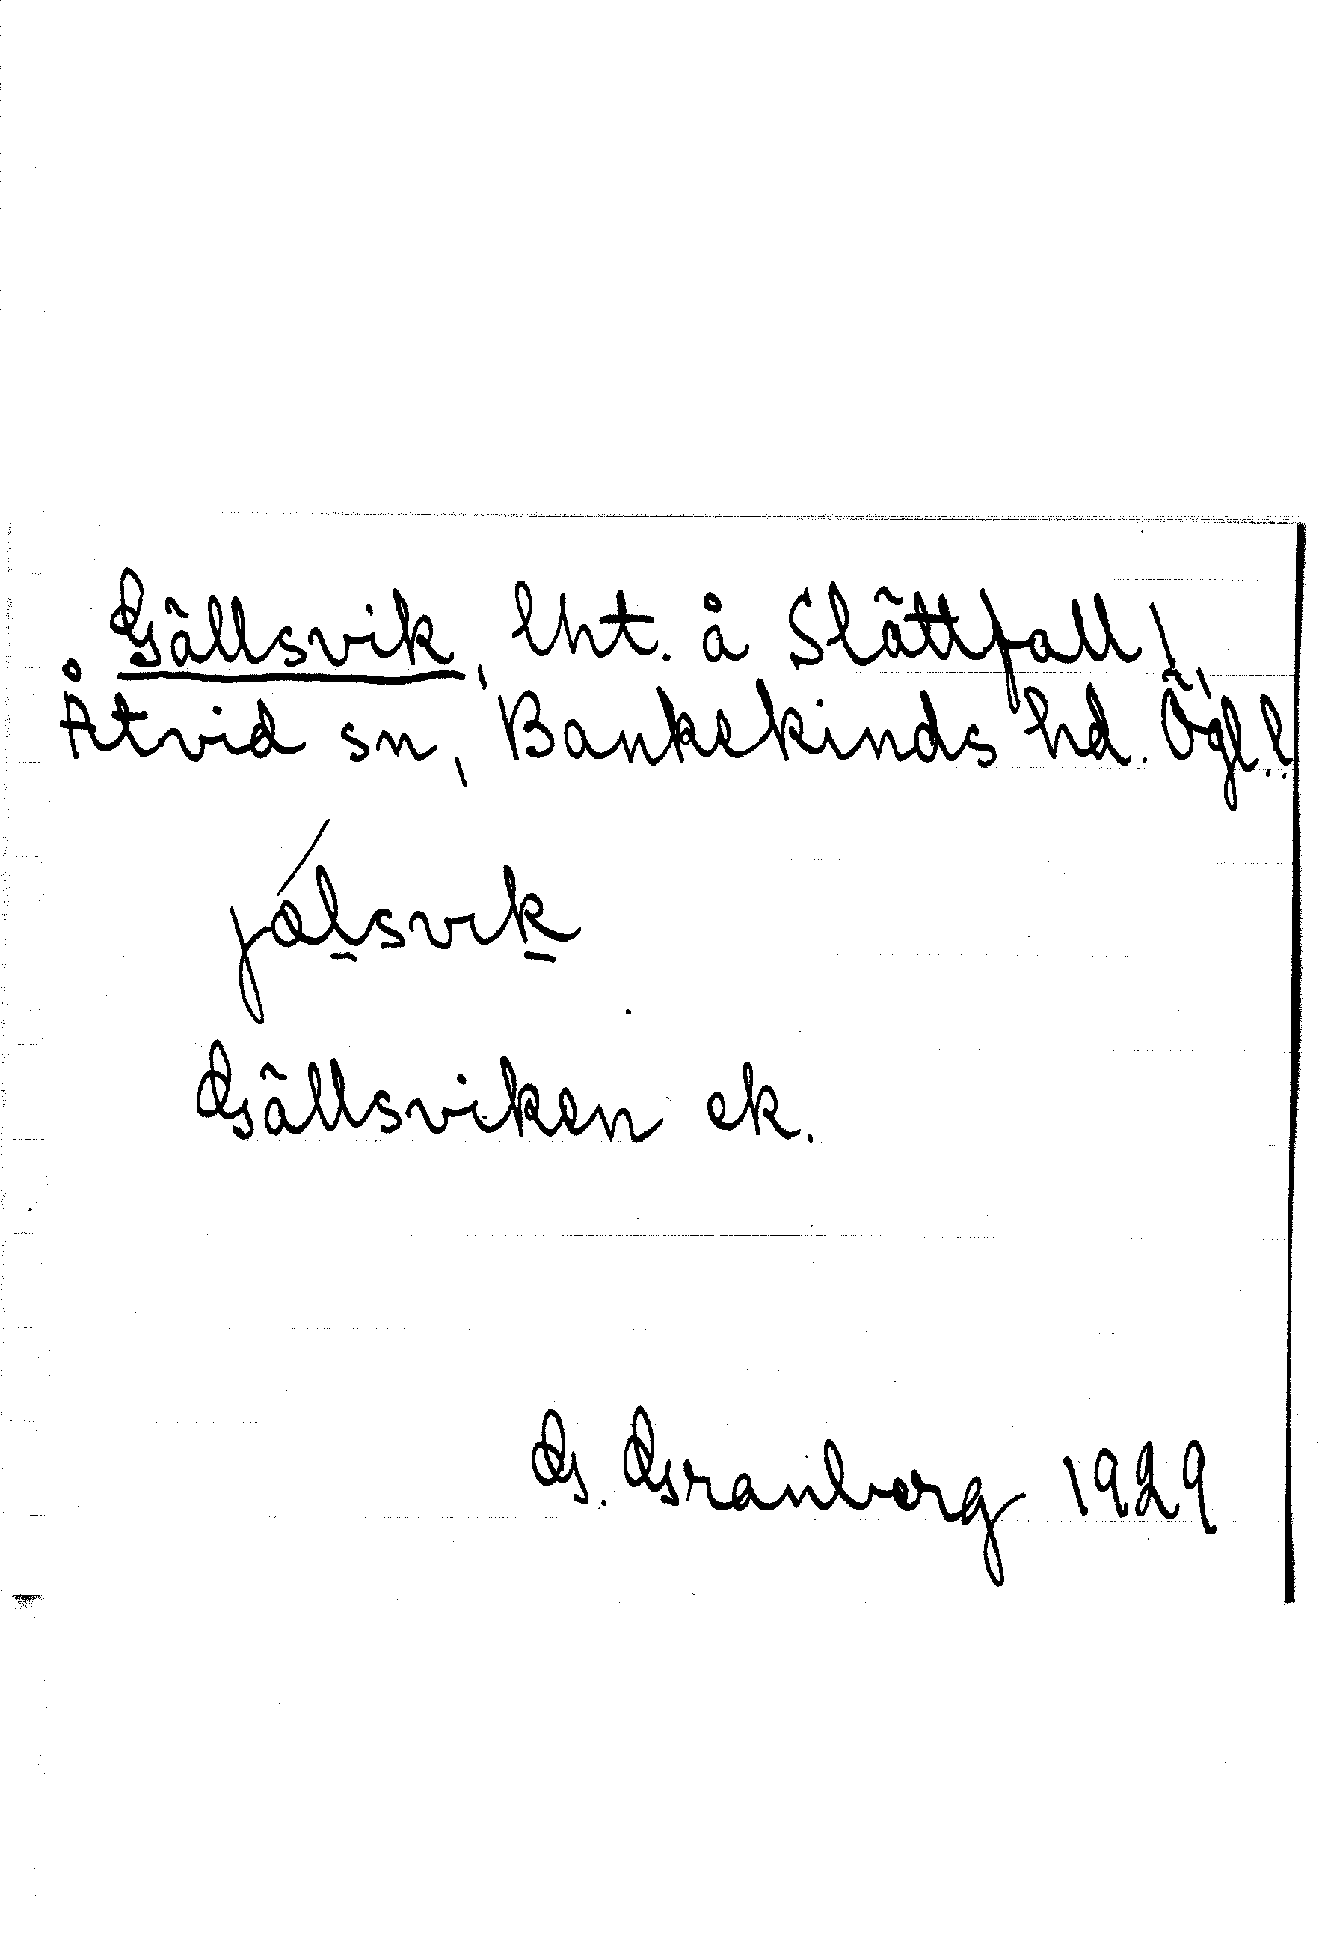 Gällsvik, lht. å Slättfall,
Åtvid sn, Bankekinds hd. Ögl.l.
jálsvik
Gällsviken ek.
G. Granberg 1929